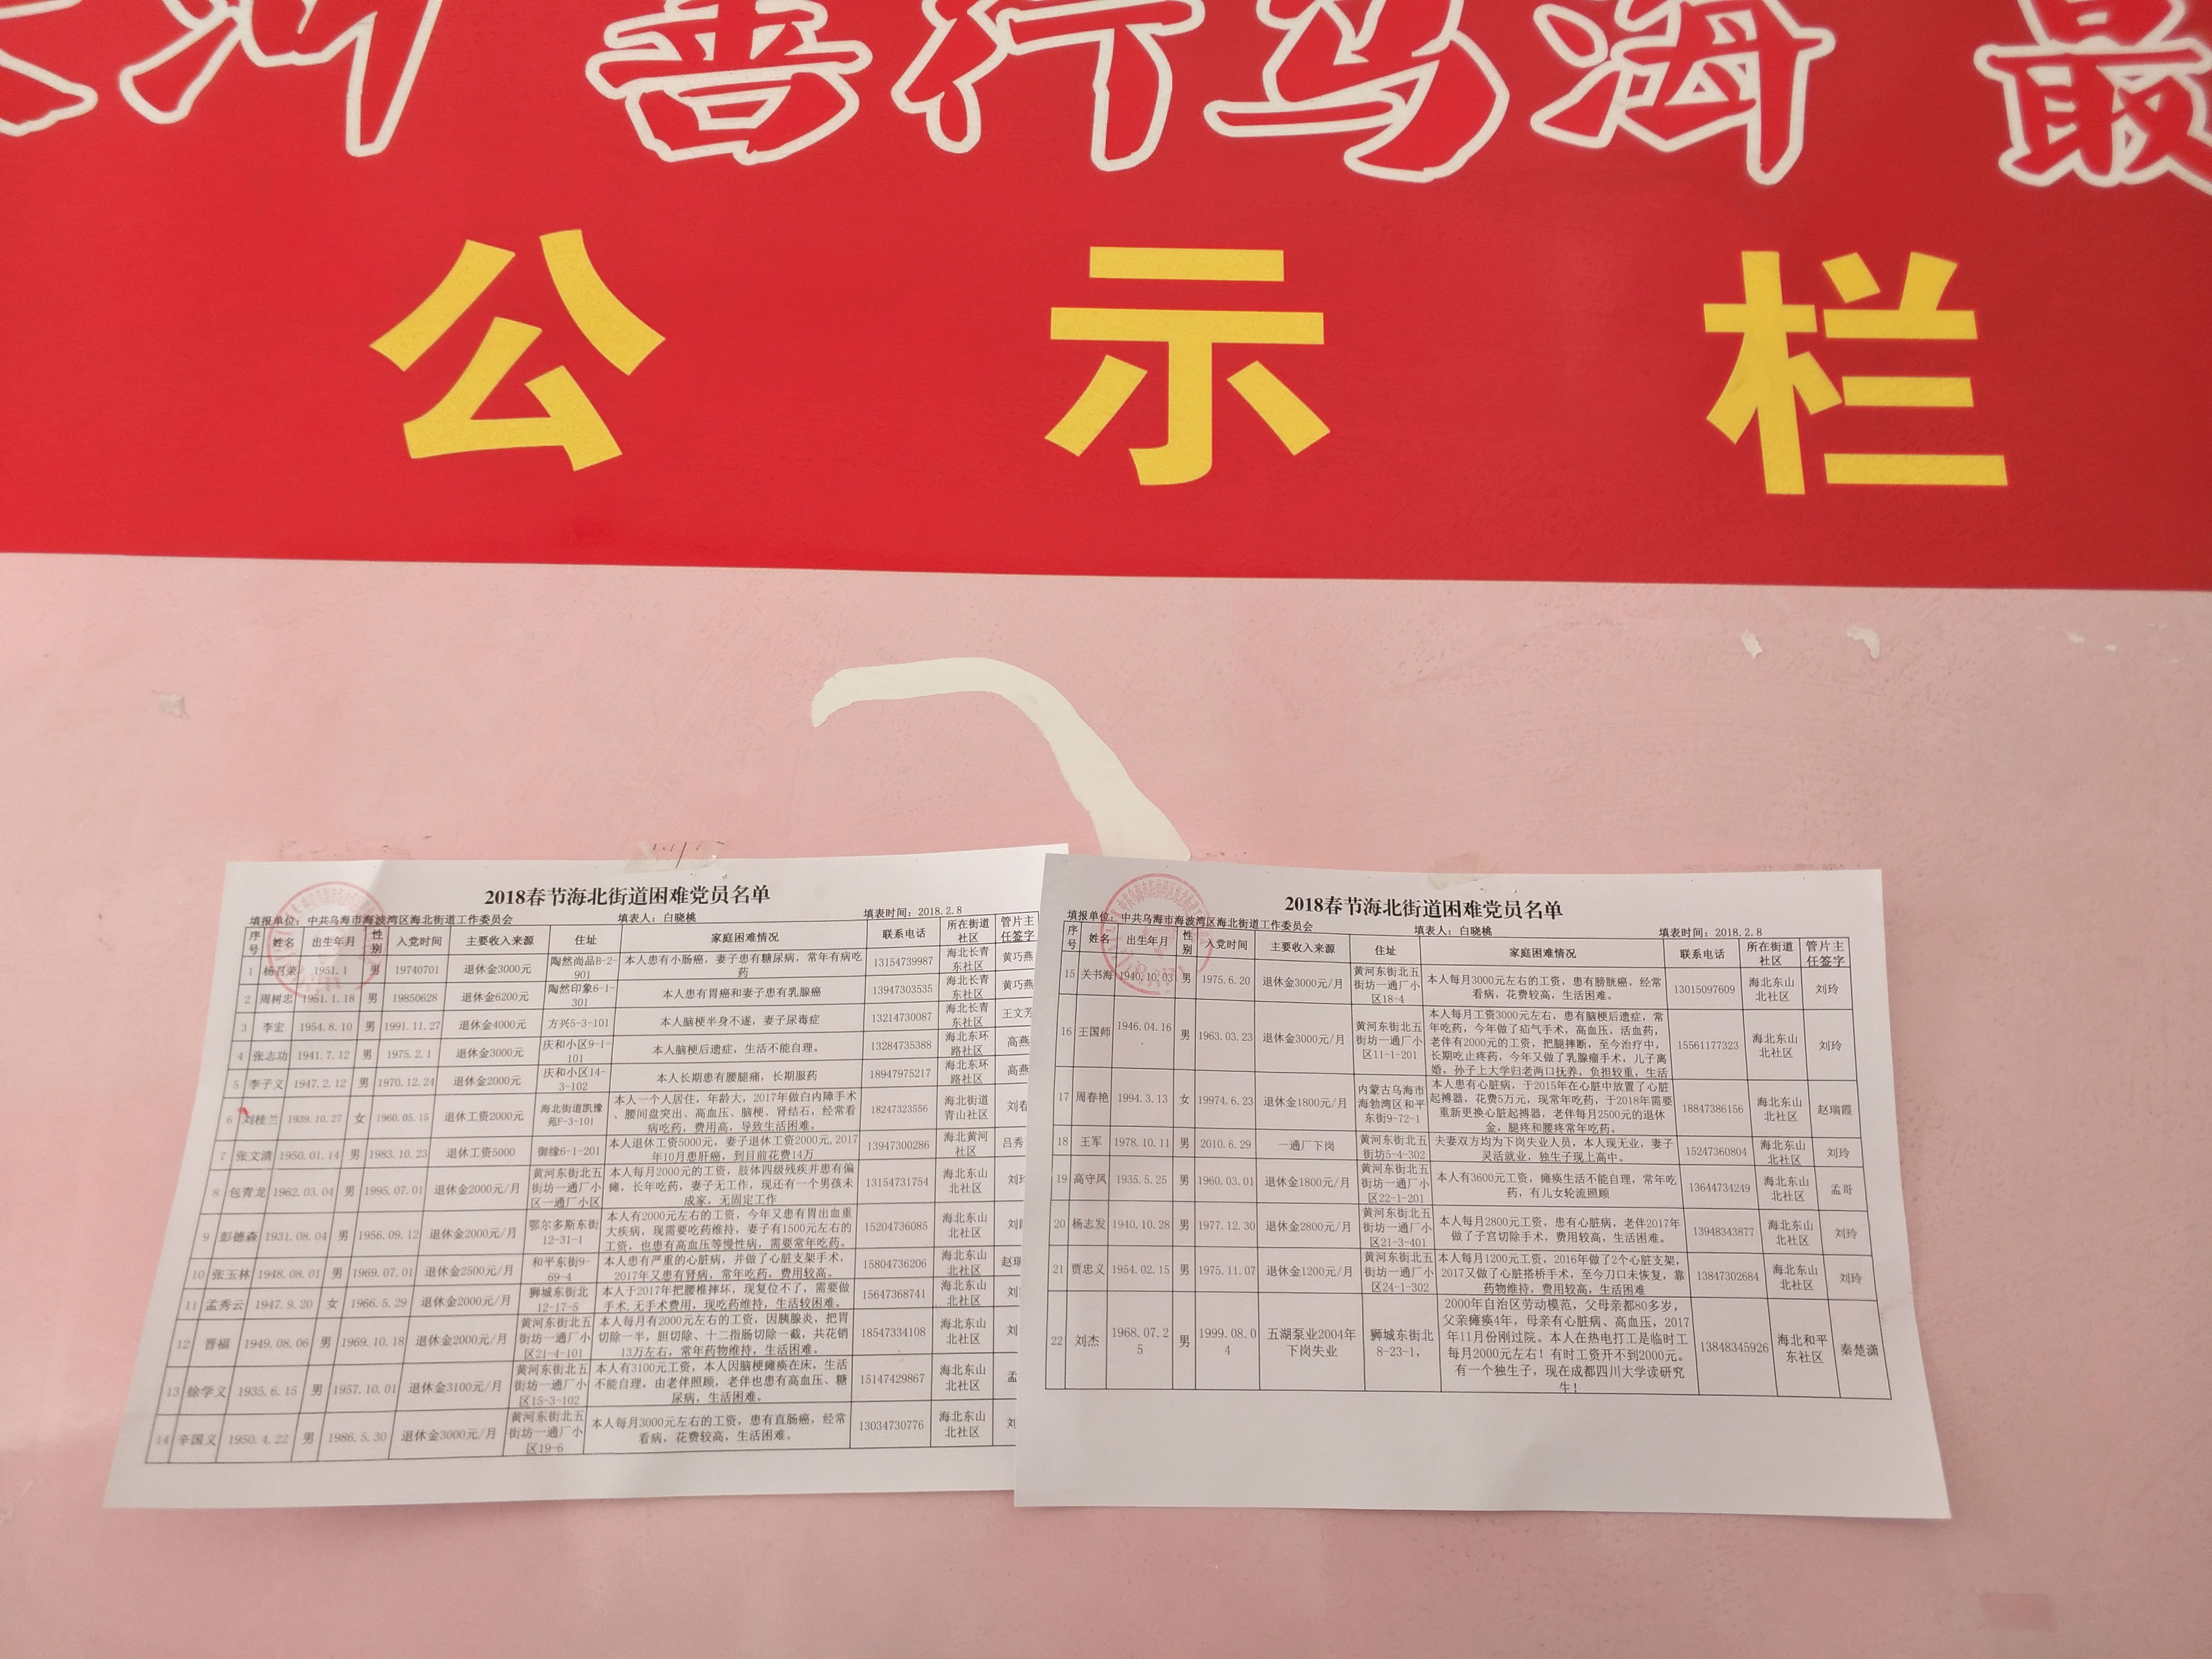 善行乌海 最
公示栏
2018春节海北街道困难党员名单
填报单位：中共乌海市海波湾区海北街道工作委员会 填表人：白晓桃 填表时间：2018.2.8
序号 姓名 出生年月 性别 入党时间 主要收入来源 住址 家庭困难情况 联系电话 所在街道社区 管片主任签字
1 杨召荣 1951.1 男 19740701 退休金3000元 陶然尚品B-2-901 本人患有小肠癌，妻子患有糖尿病，常年有病吃药 13154739987 海北长青东社区 黄巧燕
2 周树忠 1951.1.18 男 19850628 退休金6200元 陶然印象6-1-301 本人患有胃癌和妻子患有乳腺癌 13947303535 海北长青东社区 黄巧燕
3 李宏 1954.8.10 男 1991.11.27 退休金4000元 方兴5-3-101 本人脑梗半身不遂，妻子尿毒症 13214730087 海北长青东社区 王文芳
4 张志功 1941.7.12 男 1975.2.1 退休金3000元 庆和小区9-1-101 本人脑梗后遗症，生活不能自理。 13284735388 海北东环路社区 高燕
5 李子义 1947.2.12 男 1970.12.24 退休金2000元 庆和小区14-3-102 本人长期患有腰腿痛，长期服药 18947975217 海北东环路社区 高燕
6 刘桂兰 1939.10.27 女 1960.05.15 退休工资2000元 海北街道凯豫苑F-3-101 本人一个人居住，年龄大，2017年做白内障手术、腰间盘突出、高血压、脑梗、肾结石，经常看病吃药，费用高，导致生活困难。 18247323556 海北街道青山社区 刘春
7 张文清 1950.01.14 男 1983.10.23 退休工资5000 御缘6-1-201 本人退休工资5000元，妻子退休工资2000元,2017年10月患肝癌，到目前花费14万 13947300286 海北黄河社区 吕秀
8 包青龙 1962.03.04 男 1995.07.01 退休金2000元/月 黄河东街北五街坊一通厂小区一通厂小区 本人每月2000元的工资，肢体四级残疾并患有偏瘫，长年吃药，妻子无工作，现还有一个男孩未成家，无固定工作 13154731754 海北东山北社区 刘
9 彭德森 1931.08.04 男 1956.09.12 退休金2000元/月 鄂尔多斯东街12-31-1 本人有2000元左右的工资，今年又患有胃出血重大疾病，现需要吃药维持，妻子有1500元左右的工资，也患有高血压等慢性病，需要常年吃药。 15204736085 海北东山北社区 刘
10 张玉林 1948.08.01 男 1969.07.01 退休金2500元/月 和平东街9-69-4 本人患有严重的心脏病，并做了心脏支架手术，2017年又患有肾病，常年吃药，费用较高。 15804736206 海北东山北社区 赵瑞
11 孟秀云 1947.9.20 女 1966.5.29 退休金2000元/月 狮城东街北12-17-5 本人于2017年把腰椎摔坏，现复位不了，需要做手术,无手术费用，现吃药维持，生活较困难。 15647368741 海北东山北社区 刘
12 晋福 1949.08.06 男 1969.10.18 退休金2000元/月 黄河东街北五街坊一通厂小区21-4-101 本人每月有2000元左右的工资，因胰腺炎，把胃切除一半，胆切除、十二指肠切除一截，共花销13万左右，常年药物维持，生活困难。 18547334108 海北东山北社区 刘
13 徐学义 1935.6.15 男 1957.10.01 退休金3100元/月 黄河东街北五街坊一通厂小区15-3-102 本人有3100元工资，本人因脑梗瘫痪在床，生活不能自理，由老伴照顾，老伴也患有高血压、糖尿病，生活困难。 15147429867 海北东山北社区 孟
14 辛国义 1950.4.22 男 1986.5.30 退休金3000元/月 黄河东街北五街坊一通厂小区19-6 本人每月3000元左右的工资，患有直肠癌，经常看病，花费较高，生活困难。 13034730776 海北东山北社区 刘
2018春节海北街道困难党员名单
填报单位：中共乌海市海波湾区海北街道工作委员会 填表人：白晓桃 填表时间：2018.2.8
序号 姓名 出生年月 性别 入党时间 主要收入来源 住址 家庭困难情况 联系电话 所在街道社区 管片主任签字
15 关书海 1940.10.03 男 1975.6.20 退休金3000元/月 黄河东街北五街坊一通厂小区18-4 本人每月3000元左右的工资，患有膀胱癌，经常看病，花费较高，生活困难。 13015097609 海北东山北社区 刘玲
16 王国师 1946.04.16 男 1963.03.23 退休金3000元/月 黄河东街北五街坊一通厂小区11-1-201 本人每月工资3000元左右，患有脑梗后遗症，常年吃药，今年做了疝气手术，高血压，活血药，老伴有2000元的工资，把腿摔断，至今治疗中，长期吃止疼药，今年又做了乳腺瘤手术，儿子离婚，孙子上大学归老两口抚养，负担较重，生活 15561177323 海北东山北社区 刘玲
17 周春艳 1994.3.13 女 19974.6.23 退休金1800元/月 内蒙古乌海市海勃湾区和平东街9-72-1 本人患有心脏病，于2015年在心脏中放置了心脏起搏器，花费5万元，现常年吃药，于2018年需要重新更换心脏起搏器，老伴每月2500元的退休金，腿疼和腰疼常年吃药。 18847386156 海北东山北社区 赵瑞霞
18 王军 1978.10.11 男 2010.6.29 一通厂下岗 黄河东街北五街坊5-4-302 夫妻双方均为下岗失业人员，本人现无业，妻子灵活就业，独生子现上高中。 15247360804 海北东山北社区 刘玲
19 高守凤 1935.5.25 男 1960.03.01 退休金1800元/月 黄河东街北五街坊一通厂小区22-1-201 本人有3600元工资，瘫痪生活不能自理，常年吃药，有儿女轮流照顾 13644734249 海北东山北社区 孟哥
20 杨志发 1940.10.28 男 1977.12.30 退休金2800元/月 黄河东街北五街坊一通厂小区21-3-401 本人每月2800元工资，患有心脏病，老伴2017年做了子宫切除手术，费用较高，生活困难。 13948343877 海北东山北社区 刘玲
21 贾忠义 1954.02.15 男 1975.11.07 退休金1200元/月 黄河东街北五街坊一通厂小区24-1-302 本人每月1200元工资，2016年做了2个心脏支架，2017又做了心脏搭桥手术，至今刀口未恢复，靠药物维持，费用较高，生活困难 13847302684 海北东山北社区 刘玲
22 刘杰 1968.07.25 男 1999.08.04 五湖泵业2004年下岗失业 狮城东街北8-23-1， 2000年自治区劳动模范，父母亲都80多岁，父亲瘫痪4年，母亲有心脏病、高血压，2017年11月份刚过院。本人在热电打工是临时工每月2000元左右！有时工资开不到2000元。有一个独生子，现在成都四川大学读研究生！ 13848345926 海北和平东社区 秦楚潇